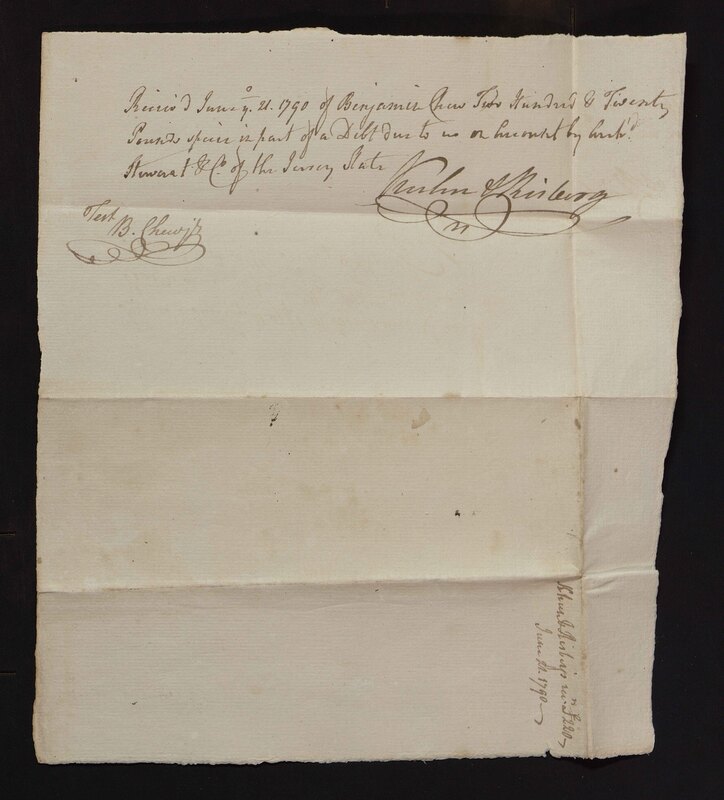 Receiv'd June ye. 21. 1790 of Benjamin Chew Two Hundred & Twenty
Pounds specie in part of a Debt due to us on Account by Arch'd.
Stewart & Co. of the Jersey State
Kuhn & Risberg
Test
B. Chew Jr
Kuhn & Risberg's £220
June 21. 1790